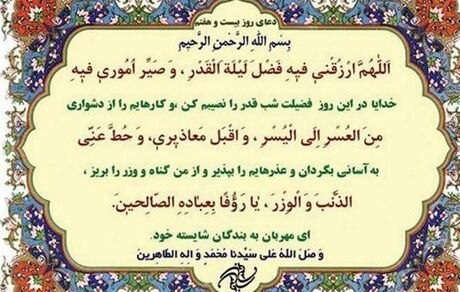 دعای روز بیست و هفتم
بِسْمِ اللهِ الرَّحْمنِ الرَّحیمِ
اَللّهُمَّ ارْزُقْنی فیهِ فَضْلَ لَیْلَةِ الْقَدْرِ، وَ صَیِّرْ اُمُوری فیهِ
خدایا در این روز فضیلت شب قدر را نصیبم کن ،و کارهایم را از دشواری
مِنَ الْعُسْرِ اِلَی الْیُسْرِ ، وَ اقْبَلْ مَعاذیری، وَ حُطَّ عَنّیِ
به آسانی بگردان و عذرهایم را بپذیر و از من گناه و وزر را بریز ،
الذَّنْبَ وَ الْوِزْرَ، یا رَؤُفًا بِعِبادِهِ الصّالِحینَ.
ای مهربان به بندگان شایسته خود.
وَ صَلَ اللهُ عَلی سَیِّدِنا مُحَمَّدٍ وَ الِهِ الطّاهِرینَ